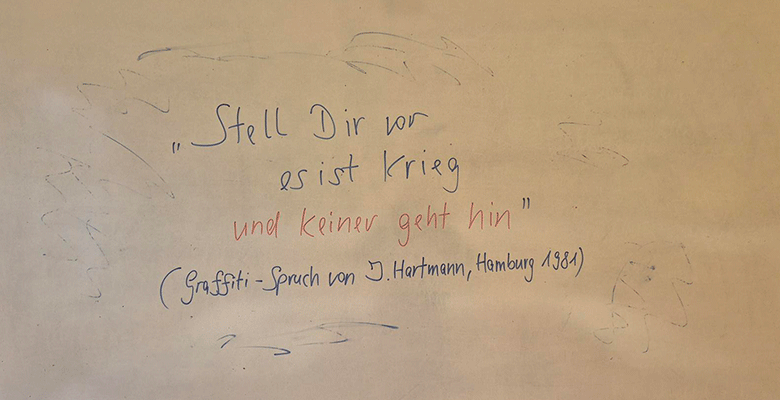 „Stell Dir vor
es ist Krieg
und keiner geht hin"
(Graffiti-Spruch von J. Hartmann, Hamburg 1981)